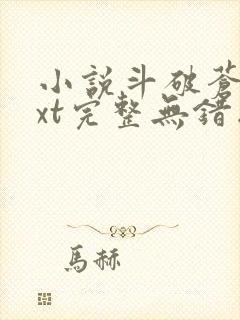 小說斗破蒼
xt完整無錯
馬赫